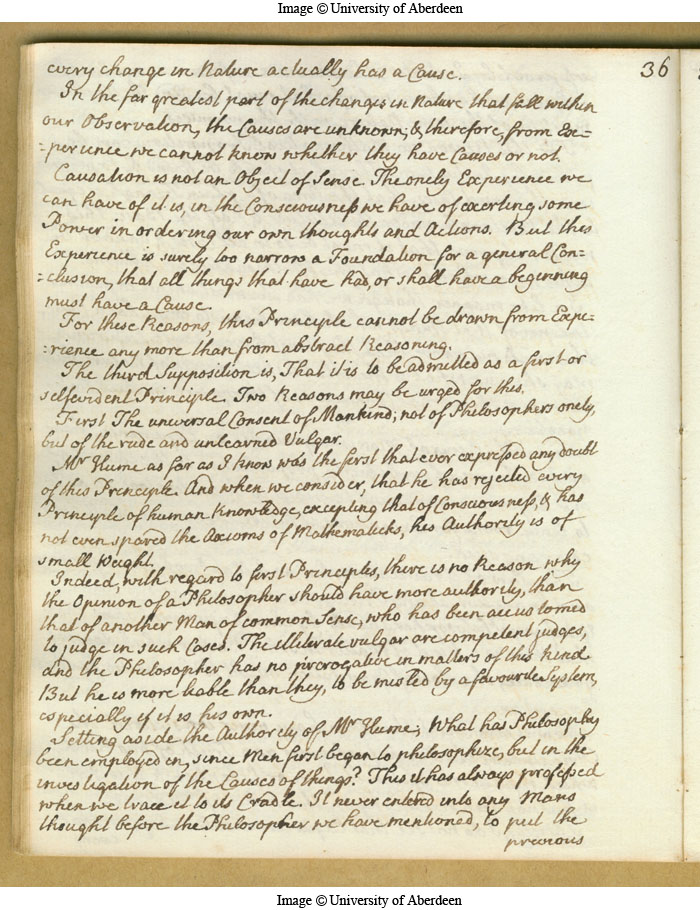 Image © University of Aberdeen
36
every change in Nature actually has a Cause.
In the far greatest part of the changes in Nature that fall within
our Observation, the Causes are unknown; & therefore, from Ex=
=perience we cannot know whether they have Causes or not.
Causation is not an Object of Sense. The onely Experience we
can have of it is, in the Consciousness we have of exerting some
Power in ordering our own thoughts and Actions. But this
Experience is surely too narrow a Foundation for a general Con=
=clusion, that all things that have had, or shall have a beginning
must have a Cause.
For these Reasons, this Principle cannot be drawn from Expe=
=rience any more than from abstract Reasoning.
The third Supposition is, That it is to be admitted as a first or
selfevident Principle. Two Reasons may be urged for this.
First The universal Consent of Mankind; not of Philosophers onely,
but of the rude and unlearned Vulgar.
Mr Hume as far as I know was the first that ever expressed any doubt
of this Principle. And when we consider, that he has rejected every
Principle of human Knowledge, excepting that of Consciousness, & has
not even spared the Axioms of Mathematicks, his Authority is of
small Weight.
Indeed, with regard to first Principles, there is no Reason why
the Opinion of a Philosopher should have more authority, than
that of another Man of common Sense, who has been accustomed
to judge in such Cases. The illiterate vulgar are competent judges,
and the Philosopher has no prerogative in matters of this kind
But he is more liable than they, to be misled by a favourite System,
especially if it is his own.
Setting aside the Authority of Mr Hume; What has Philosophy
been employed in, since Men first began to philosophize, but in the
investigation of the Causes of things? This it has always professed
when we trace it to its Cradle. It never entered into any Mans
thought before the Philosopher we have mentioned, to put the
previous
Image © University of Aberdeen